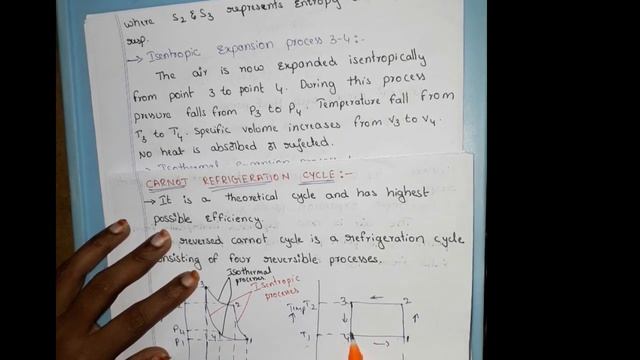 where S2 & S3 represents Entropy
resp.
→ Isentropic Expansion process 3-4:-
The air is now expanded isentropically
from point 3 to point 4. During this process
pressure falls from P3 to P4. Temperature fall from
T3 to T4. Specific volume increases from v3 to v4.
No heat is absorbed or rejected.
CARNOT REFRIGERATION CYCLE:-
→ It is a theoretical cycle and has highest
possible Efficiency.
reversed carnot cycle is a refrigeration cycle
consisting of four reversible processes.
Isothermal
processes
Isentropic
processes
3
2
P4
P1
4
1
Temp
T2
T1
3
2
4
1